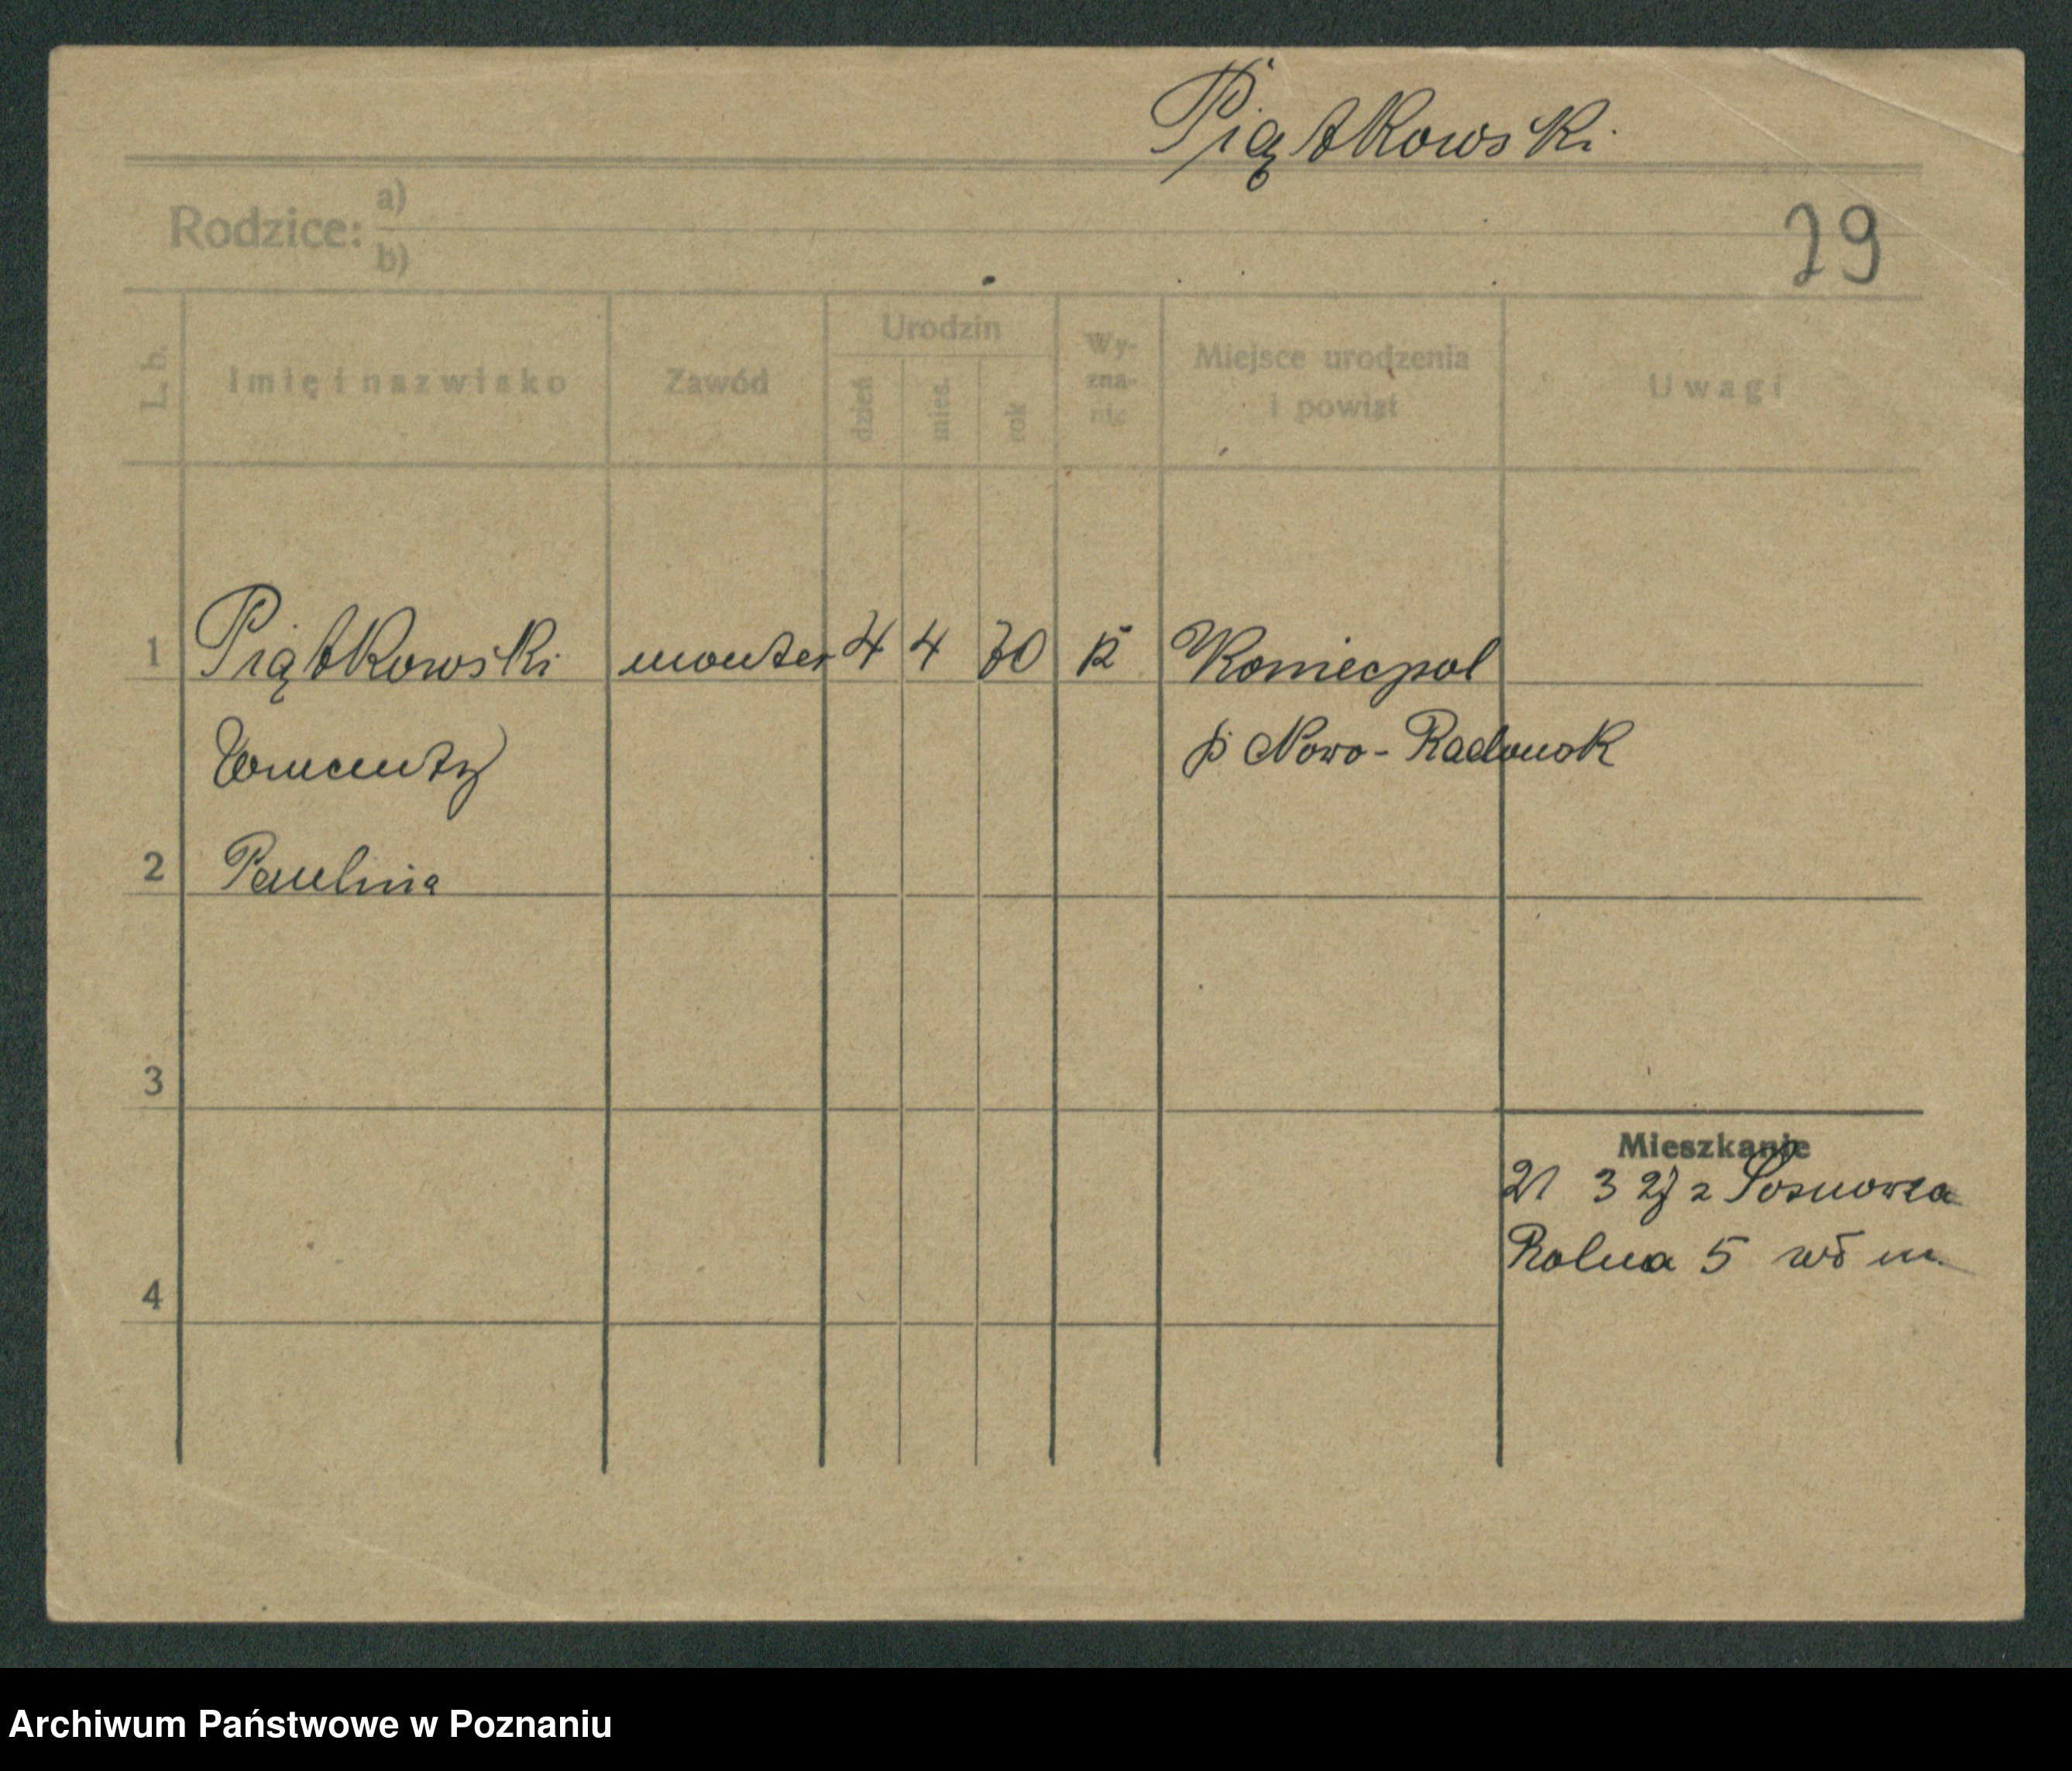 Piątkowski
Rodzice: a)
b)
29
L. b.
Imię i nazwisko
Zawód
Urodzin
dzień
mies.
rok
Wy-
zna-
nie
Miejsce urodzenia
i powiat
Uwagi
1 Piątkowski monter 4 4 70 k Koniecpol
p Nowo-Radomsk
2 Paulina
3
Mieszkanie
21 3 27 z Sosnowca
Rolna 5 wł m.
4
Archiwum Państwowe w Poznaniu